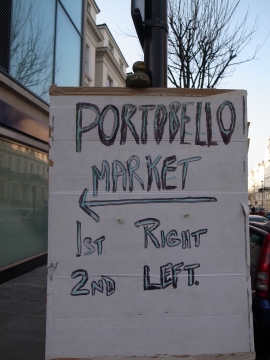 PORTOBELLO
MARKET
1ST RIGHT
2ND LEFT.